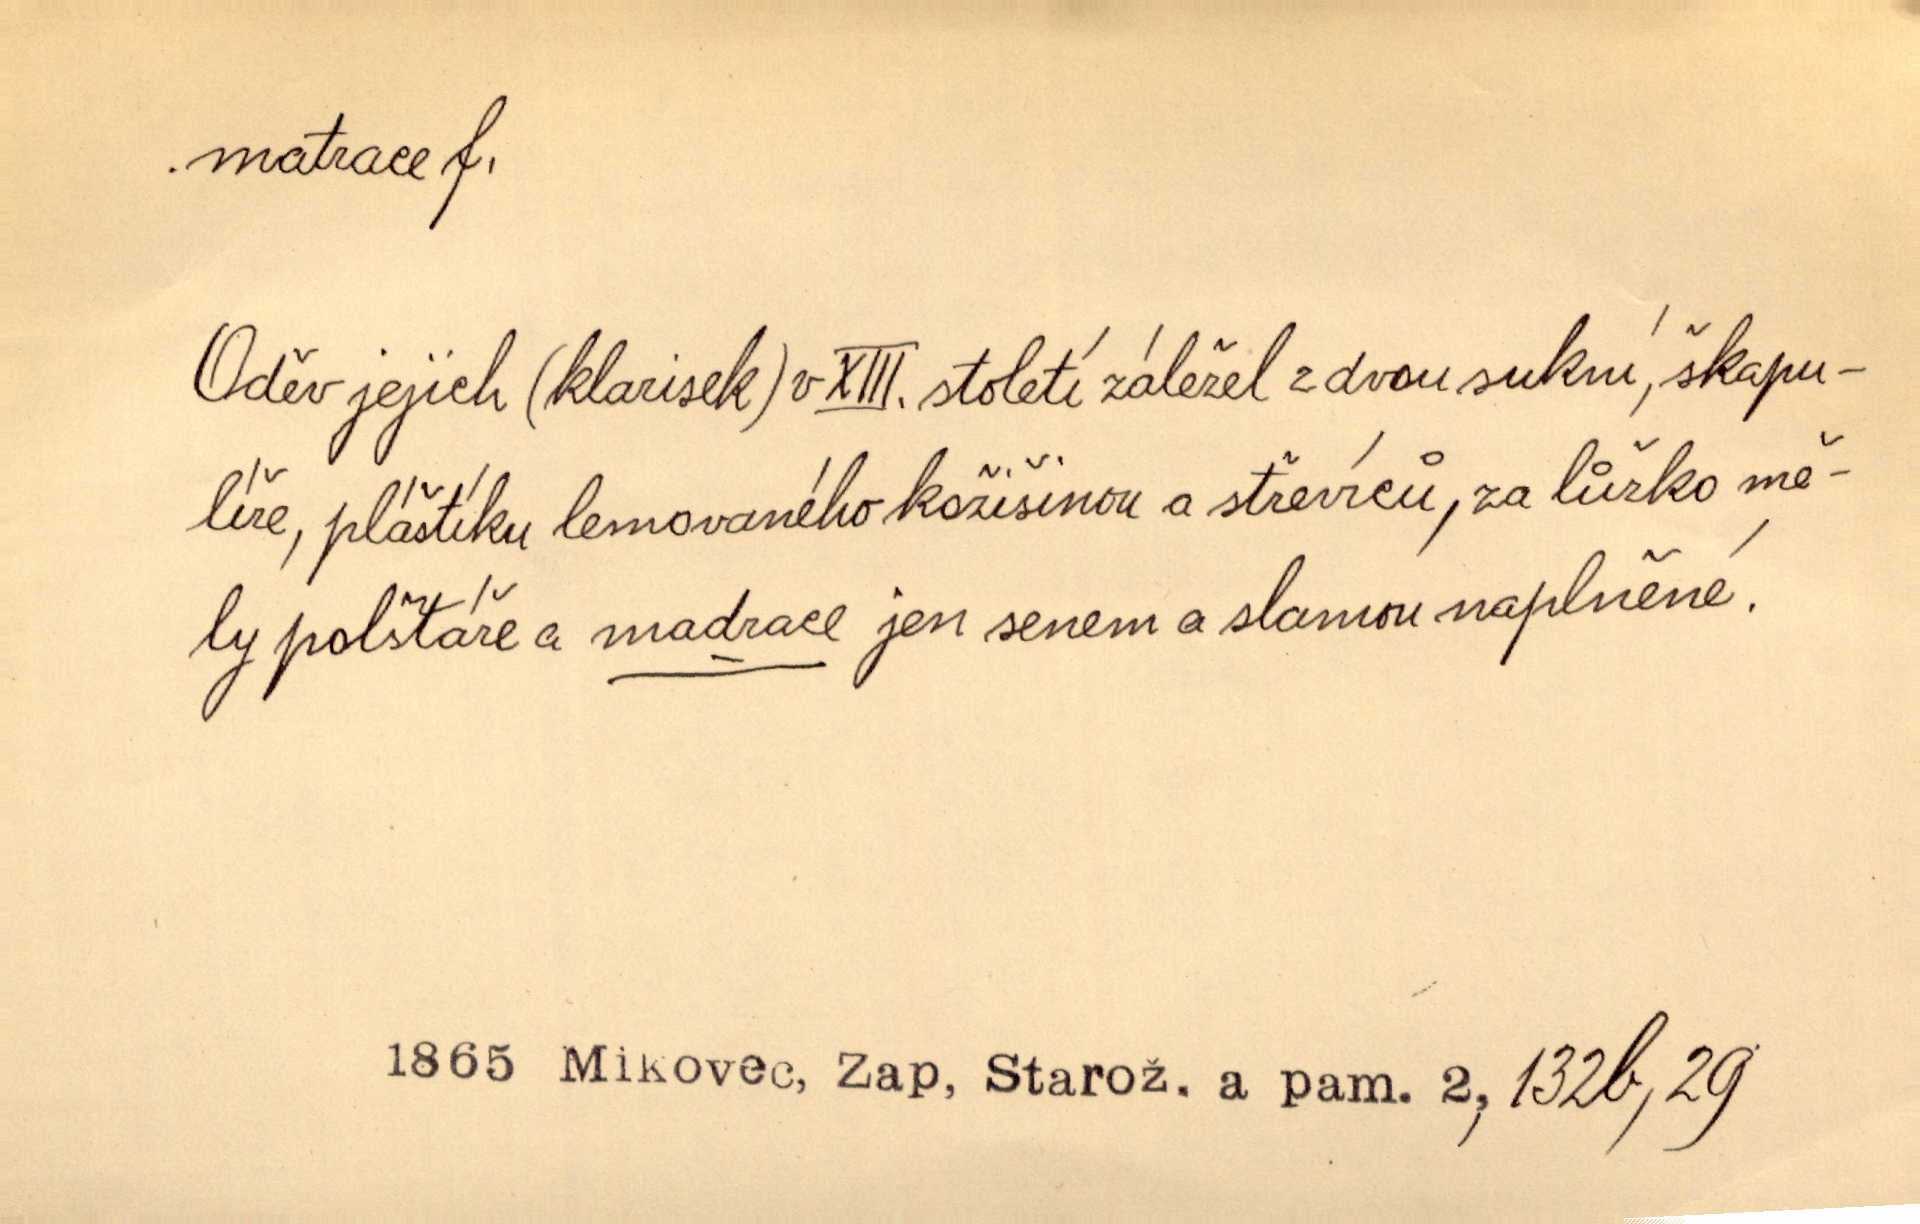 . matrace f.
Oděv jejich (klarisek) v XIII. století záležel z dvou sukní, škapu-
líře, pláštíku lemovaného kožišinou a střevíců, za lůžko mě-
ly polštáře a madrace jen senem a slamou naplněné.
1865 Mikovec, Zap, Starož. a pam. 2, 132b, 29